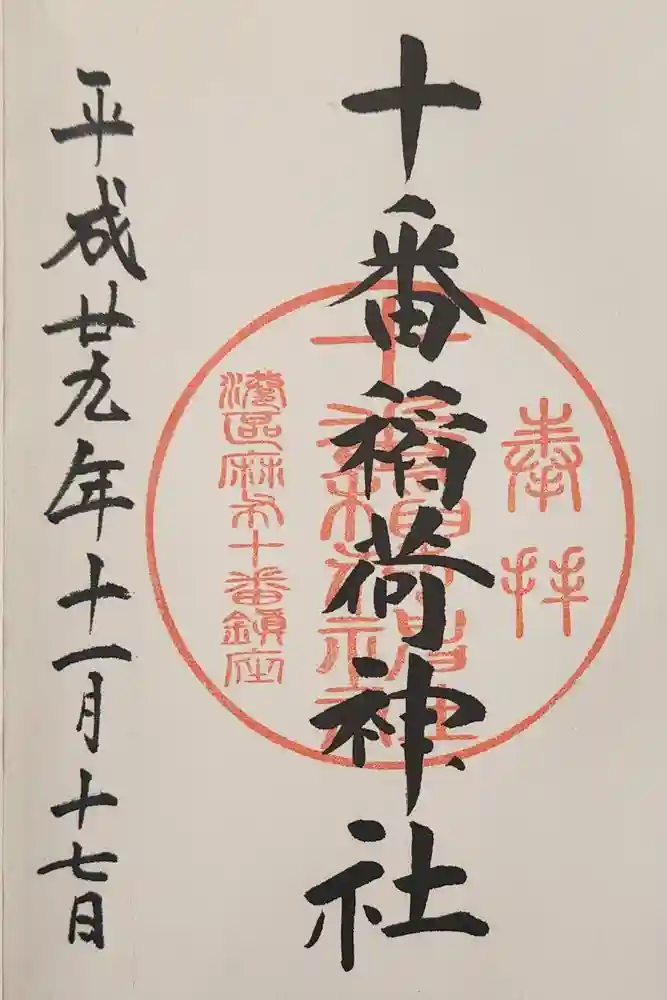 奉拝
十番稲荷神社
十番稲荷神社
港區麻布十番鎮座
平成廿九年十一月十七日